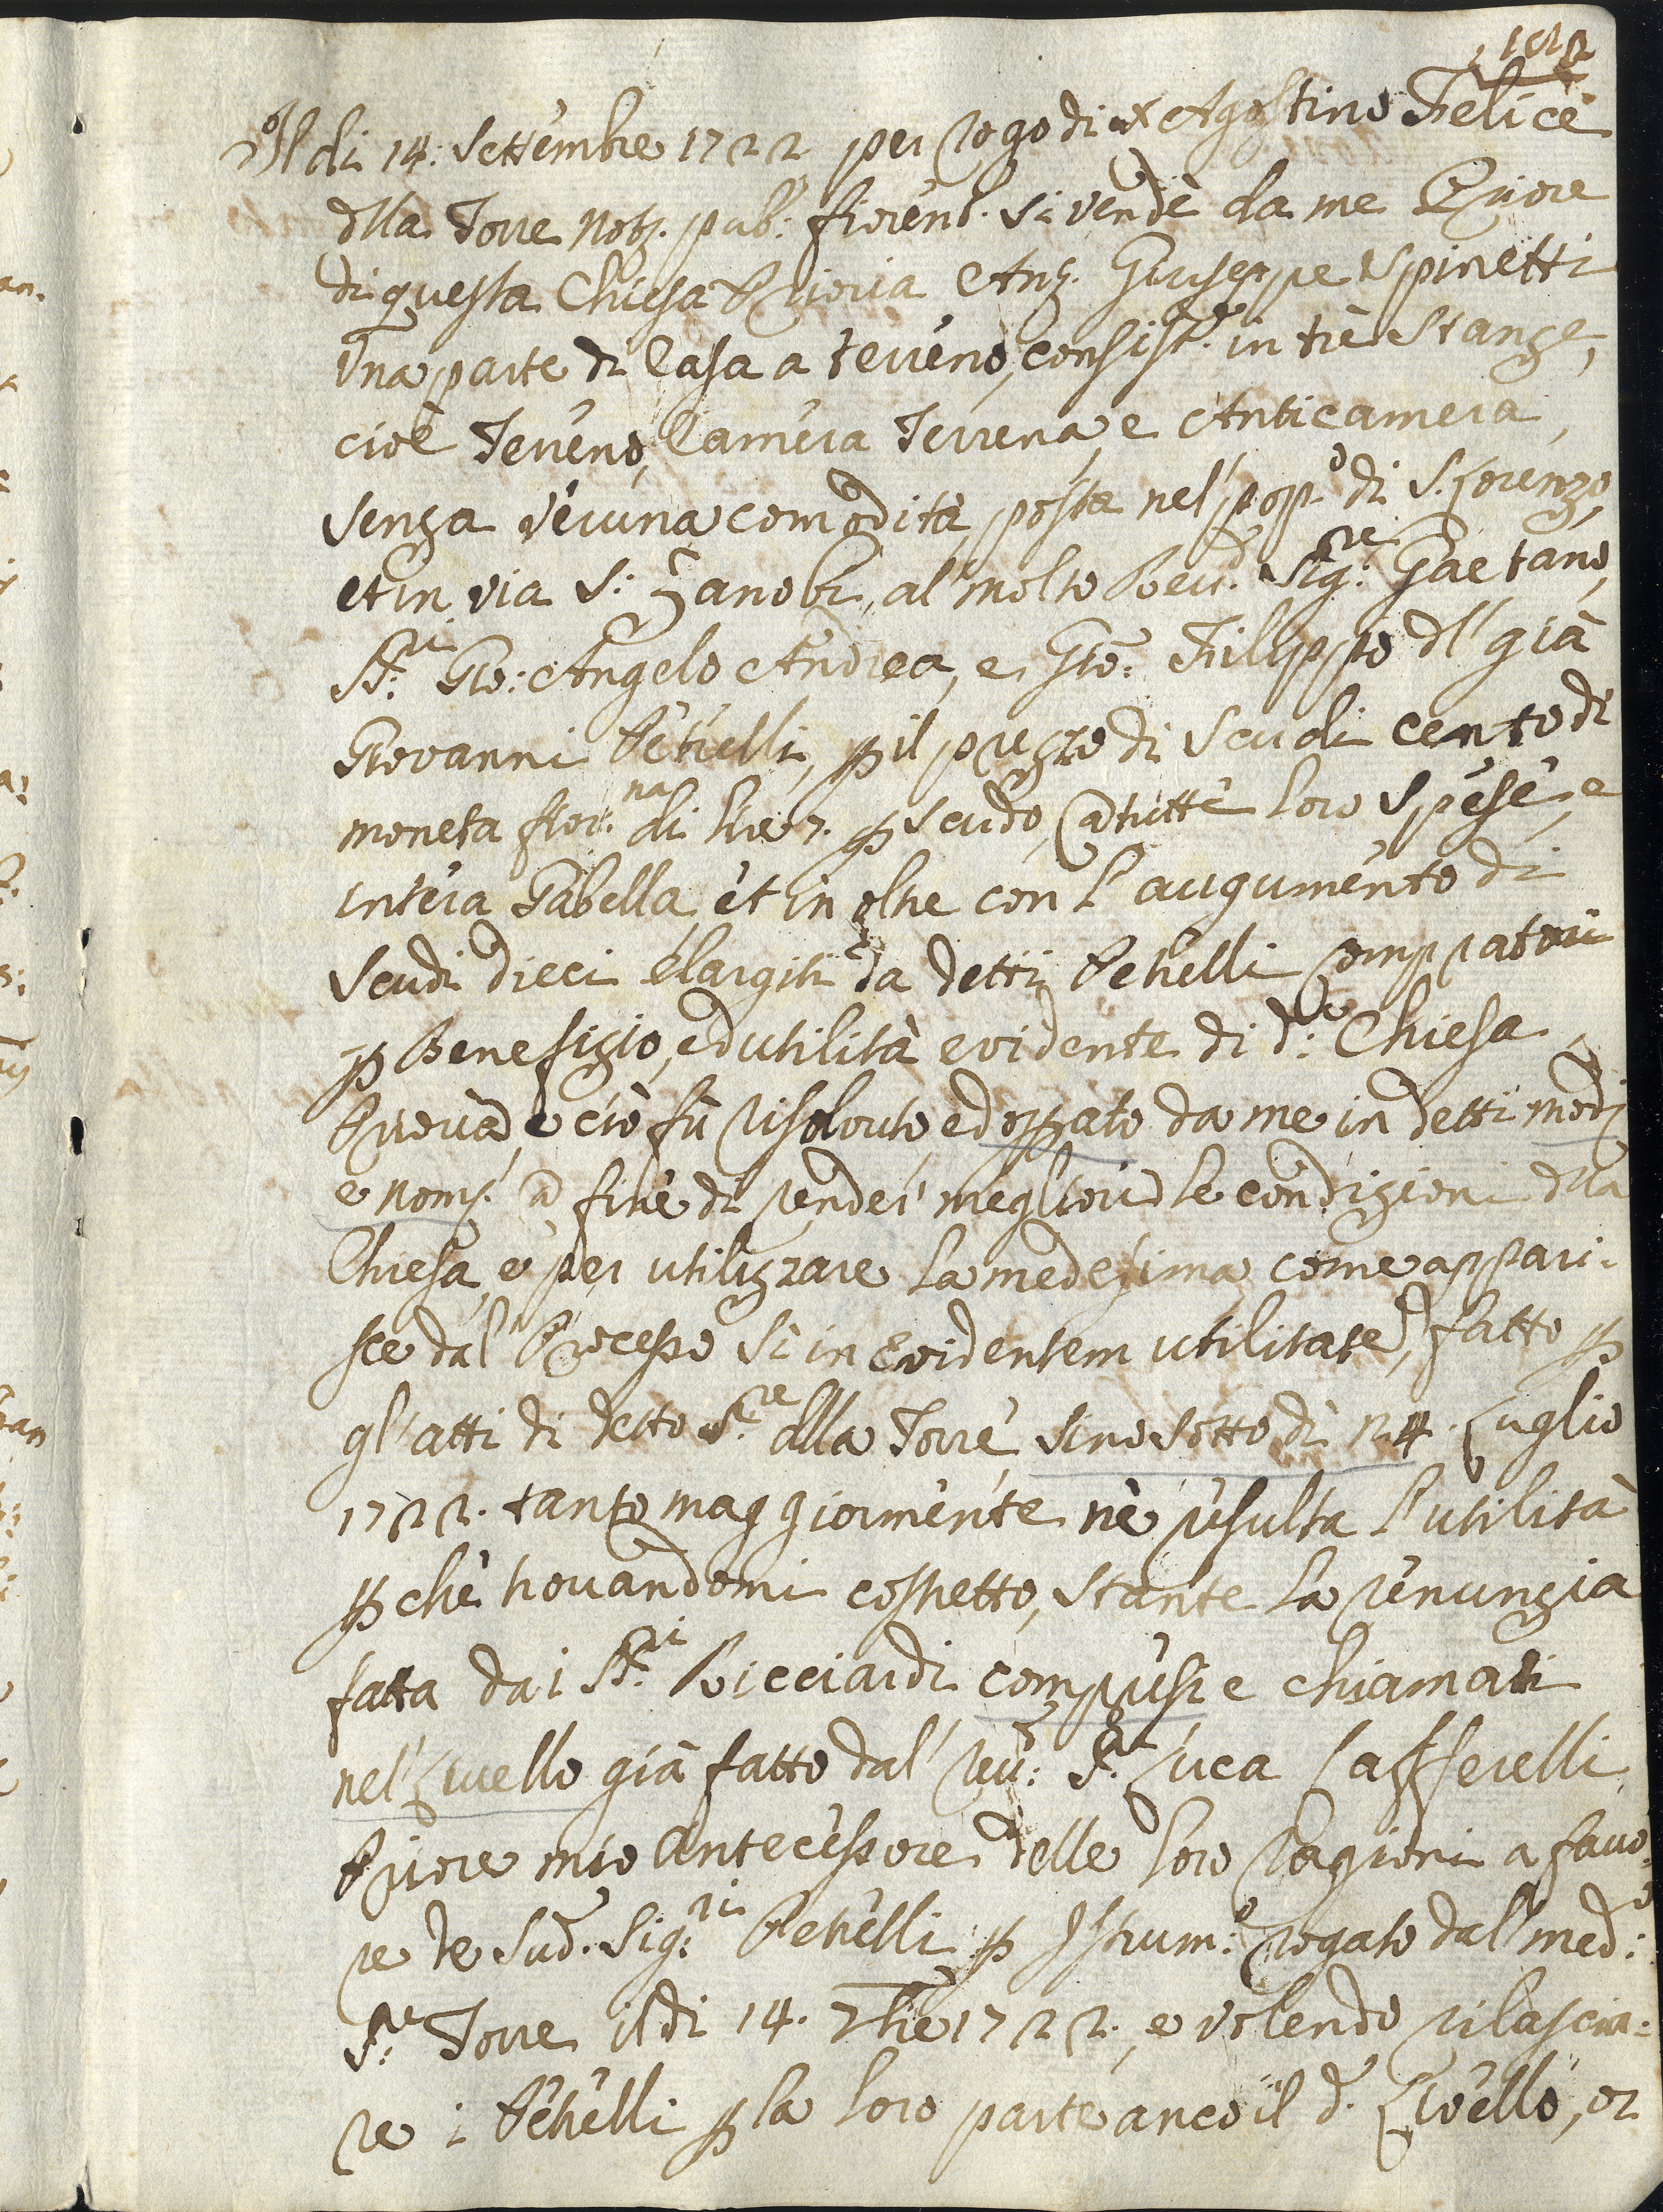 Il di 14: Settembre 1722 per rogo di Agostino Felice
dlla Torre Not. pub: fiorent. si vendè da me Priore
di questa Chiesa Prioria Ant. Giuseppe Spinetti
Una parte di Casa a terreno, consist.e in trè Stanze,
cioè Terreno, Camera Terrena, e Anticamera,
senza veruna comodità, posta nel' pop.o di S. Lorenzo,
et in via S: Zanobi, al' molto Rev.do Sig:re Gaetano,
SS:ri Gio: Angelo Andrea, e Gio: Filippo dl' già
Giovanni Petrelli, p il prezzo di Scudi cento di
moneta fior.na di lire 7. p scudo, a tutte loro Spese, e
intera Gabella, et in oltre con l'augumento di
Scudi dieci elargiti da detti Petrelli Compratori
p Benefizio, ed utilità evidente di d:a Chiesa
Prioria, e ciò fù risoluto, ed oprato da me in detti modi
e nomi a fine di render' megliori le condizioni dlla
Chiesa, e per utilizzare la medesima come appari:
sce dal' Processo Si in Evidentem utilitatem, fatto p
gl'atti di detto S.re dlla Torre sino sotto dì 24. Luglio
1722. tanto maggiormente nè risulta l'utilità
p chè trovandomi costretto, stante la renunzia
fatta da i SS.ri Ricciardi compresi e chiamati
nel' Livello già fatto dal' Rev: S.r Luca Cafferelli
Priore mio Antecessore delle loro Ragioni a favo:
re de Sud. Sig:ri Petrelli p Istrum:o rogato dal' med:o
S:re Torre il di 14. 7bre 1722., e volendo rilascia:
re i Petrelli p la loro parte anco il d.o Livello, or